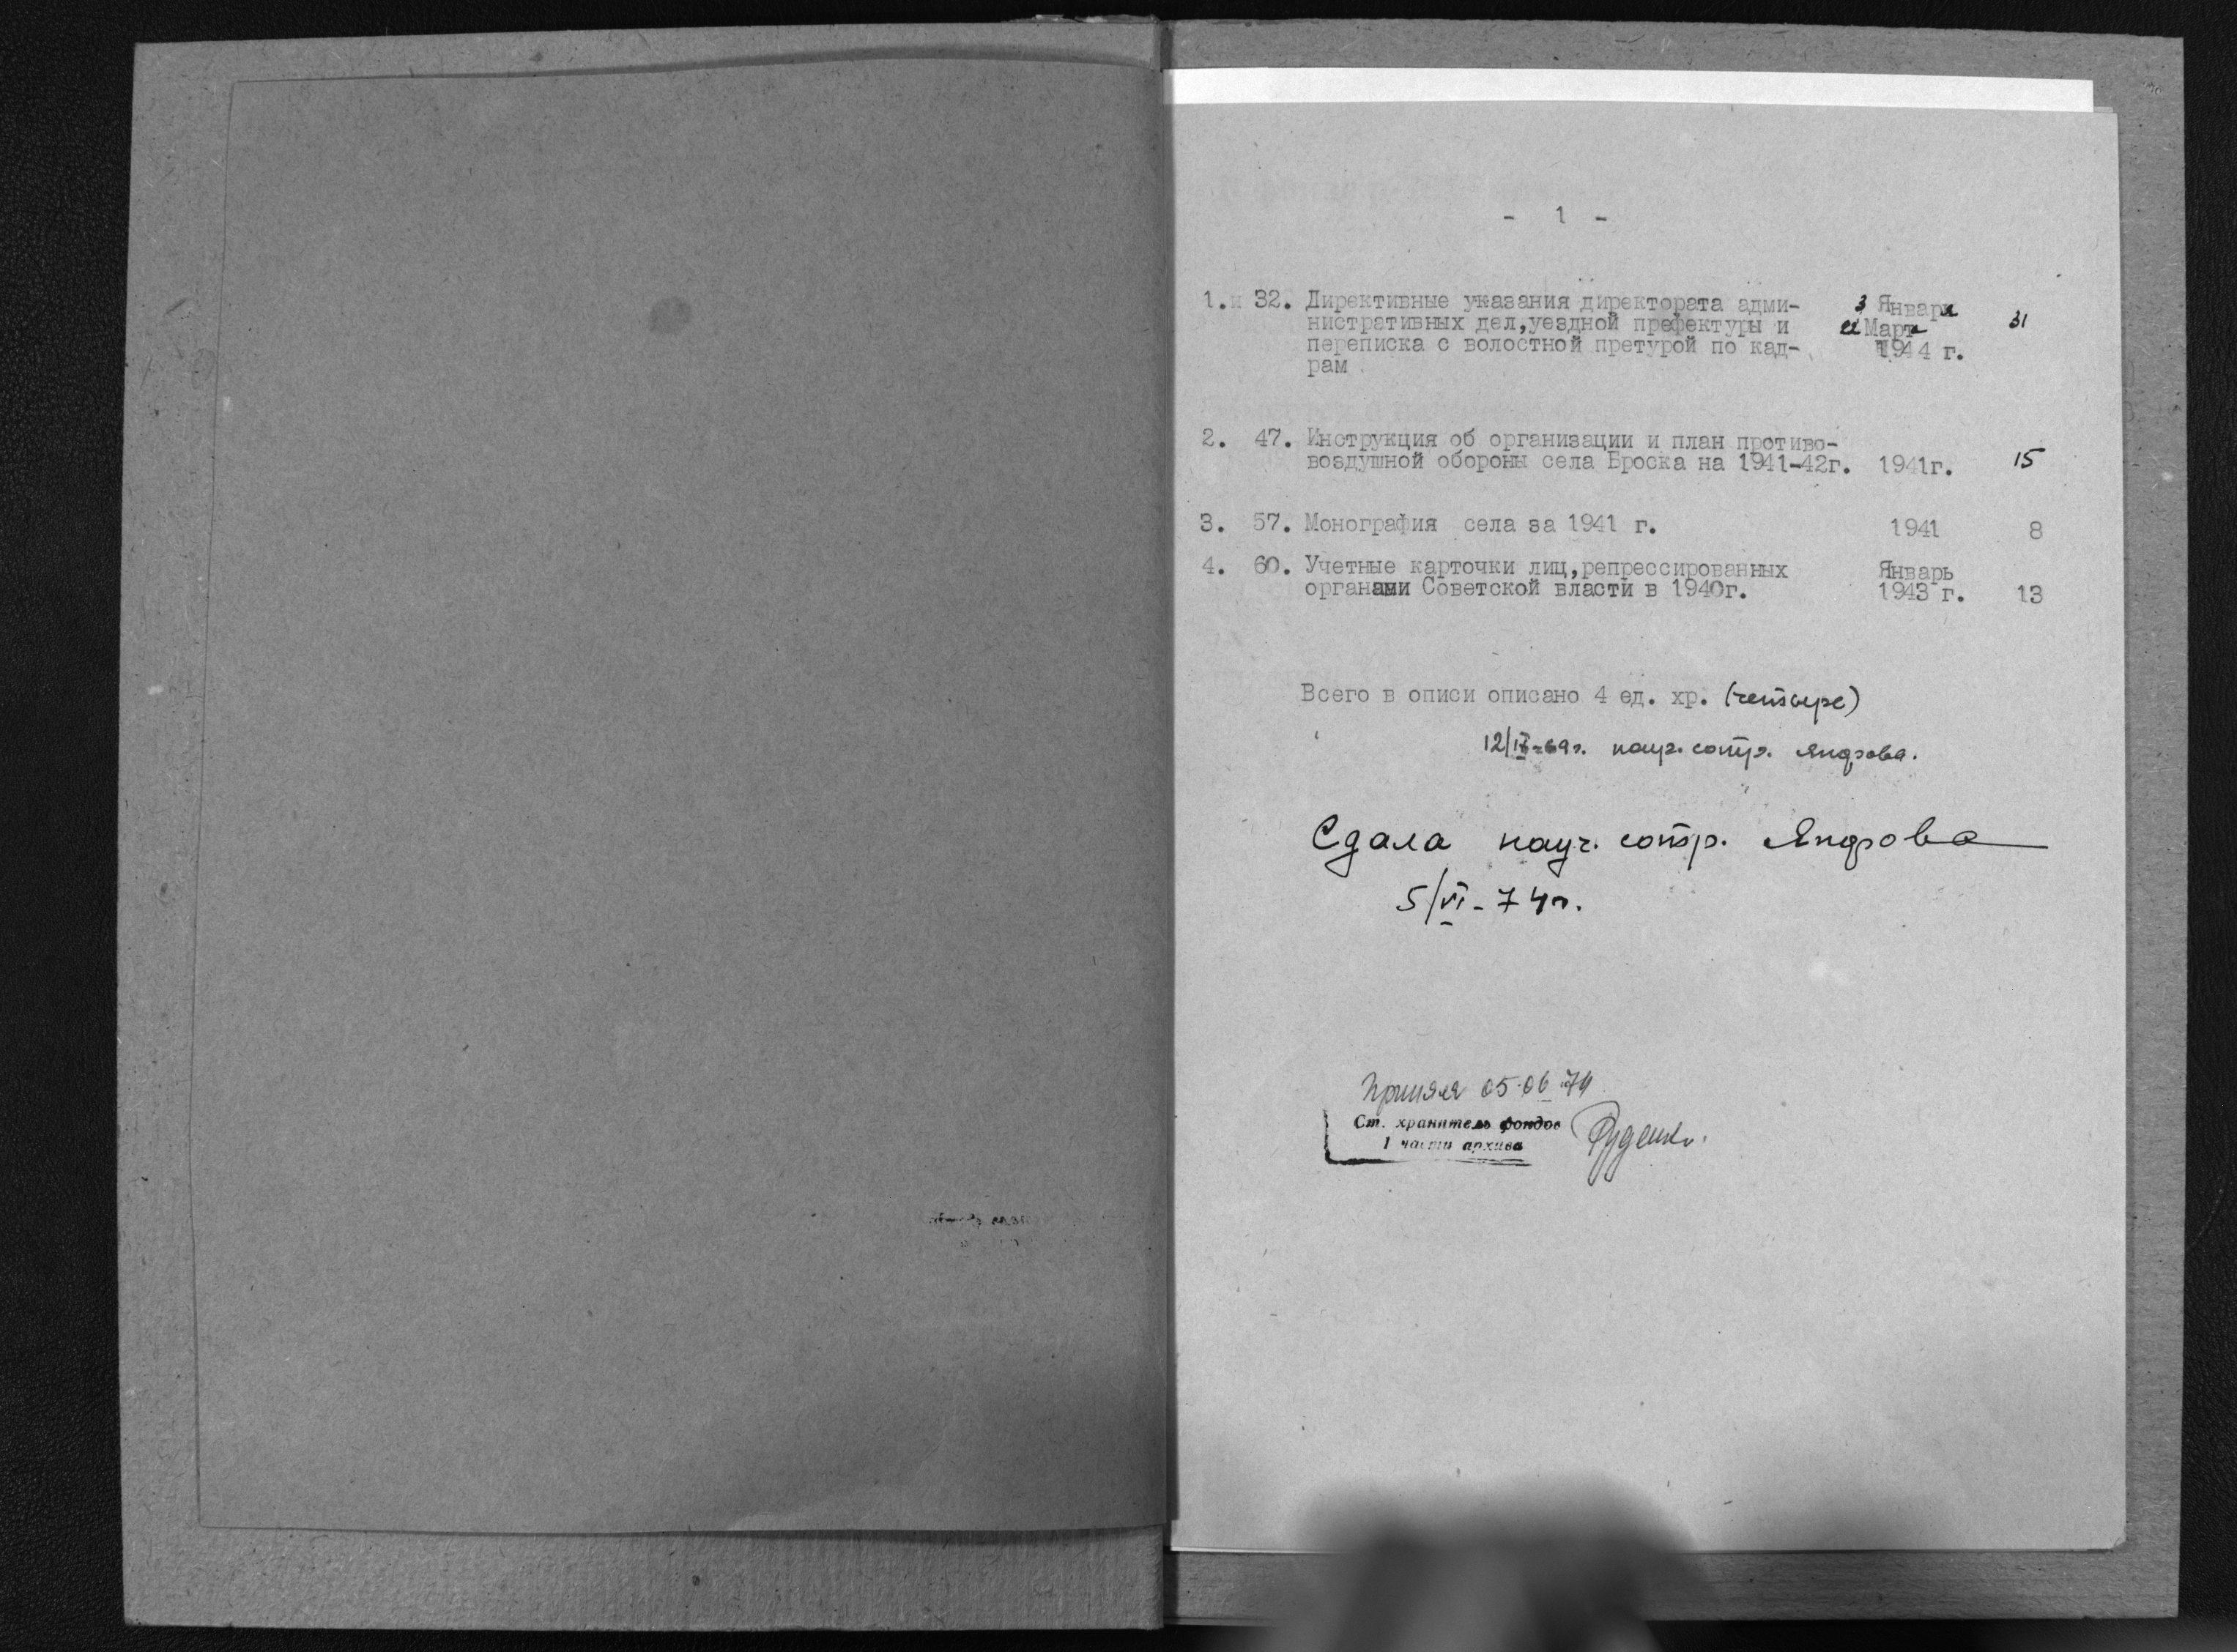 - 1 -
1. 32. Директивные указания директората адми- 3 Января
нистративных дел,уездной префектуры и Марта 31
переписка с волостной претурой по кад- 1944 г.
рам
2. 47. Инструкция об организации и план противо-
воздушной обороны села Броска на 1941-42г. 1941г. 15
3. 57. Монография села за 1941 г. 1941 8
4. 60. Учетные карточки лиц,репрессированных Январь
органами Советской власти в 1940г. 1943 г. 13
Всего в описи описано 4 ед. хр. (четыре)
науч. сотр. Яндрова.
Сдала науч. сотр. Яндрова
5/VI-74г.
Приняла 05.06.74
Ст. хранитель фондов
1 части архива